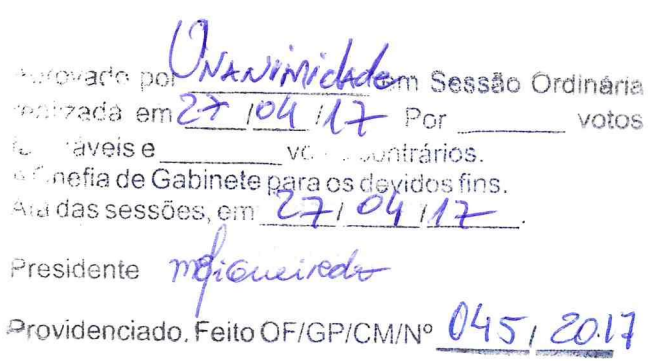 Aprovado por Unanimidade em Sessão Ordinária
realizada em 27/04/17 Por ______ votos
favoráveis e ______ votos contrários.
À Chefia de Gabinete para os devidos fins.
Ala das sessões, em 27/04/17.
Presidente
Providenciado, Feito OF/GP/CM/Nº 045/2017